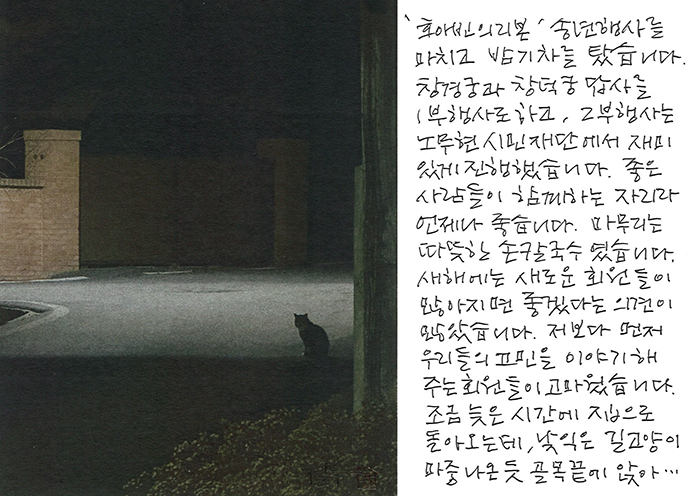 '효아빈의리본' 송년행사를
마치고 밤기차를 탔습니다.
창경궁과 창덕궁 답사를
1부행사로하고, 2부행사는
노무현시민재단에서 재미
있게진행했습니다. 좋은
사람들이 함께하는 자리라
언제나 좋습니다. 마무리는
따뜻한 손칼국수였습니다.
새해에는 새로운 회원들이
많아지면 좋겠다는 의견이
많았습니다. 저보다 먼저
우리들의 고민을 이야기해
주는회원들이고마웠습니다.
조금 늦은 시간에 집으로
돌아오는데, 낯익은 길고양이
마중나온듯 골목끝에 앉아…